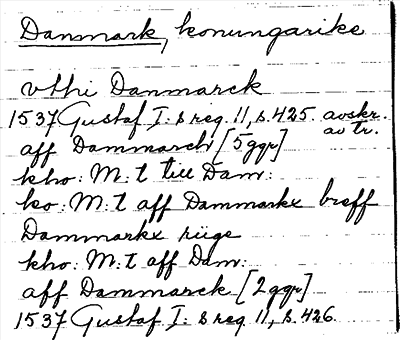 Danmark, konungarike
vthi Danmarck
1537 Gustaf I:s reg. 11, s. 425. avskr. av tr.
aff Dammarch [5 ggr]
kho: M:t till Dam:
ko: M:t aff Dammarkx breff
Dammarkx riige
kho: M:t aff Dam:
aff Dammarck [2 ggr]
1537 Gustaf I:s reg. 11, s. 426.